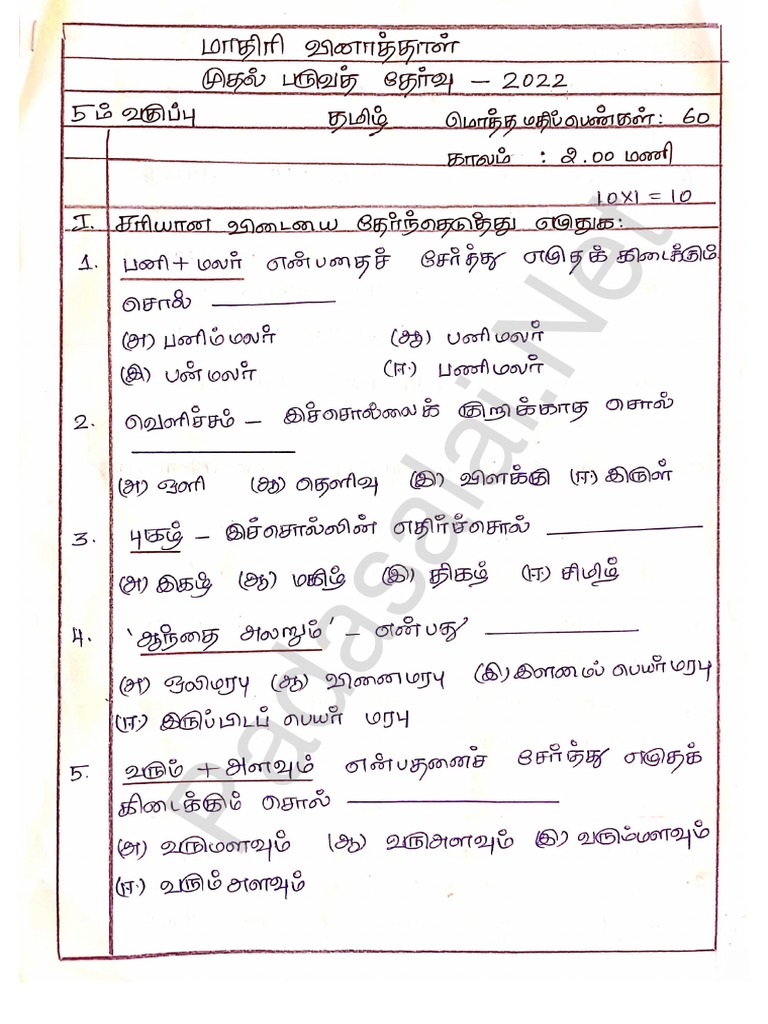 மாதிரி வினாத்தாள்
முதல் பருவத் தேர்வு – 2022
5 ம் வகுப்பு தமிழ் மொத்த மதிப்பெண்கள் : 60
காலம் : 2.00 மணி
10X1 = 10
I. சரியான விடையை தேர்ந்தெடுத்து எழுதுக :
1. பனி + மலர் என்பதைச் சேர்த்து எழுதக் கிடைக்கும்
சொல் __________
(அ) பனிம்மலர் (ஆ) பனிமலர்
(இ) பன்மலர் (ஈ) பணிமலர்
2. வெளிச்சம் – இச்சொல்லைக் குறிக்காத சொல்
__________
(அ) ஒளி (ஆ) தெளிவு (இ) விளக்கி (ஈ) இருள்
3. புகழ் – இச்சொல்லின் எதிர்ச்சொல் __________
(அ) இகழ் (ஆ) மகிழ் (இ) திகழ் (ஈ) சிமிழ்
4. 'ஆந்தை அலறும்' – என்பது __________
(அ) ஒலிமரபு (ஆ) வினைமரபு (இ) இளமைப் பெயர்மரபு
(ஈ) இருப்பிடப் பெயர் மரபு
5. வரும் + அளவும் என்பதனைச் சேர்த்து எழுதக்
கிடைக்கும் சொல் __________
(அ) வருமளவும் (ஆ) வருஅளவும் (இ) வரும்மளவும்
(ஈ) வரும் அளவும்
Padasalai.Net